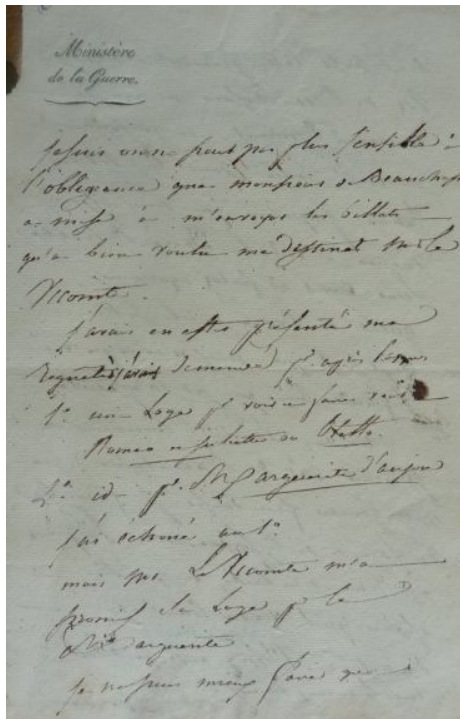 Ministère
de la Guerre.
je suis on ne peut pas plus sensible à
l'obligeance que monsieur de Beauchap
a mise à m'envoyer les billets
qu'a bien voulu me destiner Mr le
Vicomte.
j'avais en effet présenté ma
Requete j'avais demandé pr après
1º une Loge pr voir
Romeo et juliette ou Otello.
2º id pr Marguerite d'anjou
j'ai échoué au 1º
mais Mr Le Vicomte m'a
promis la Loge pr la
Marguerite.
je ne puis mieux faire que